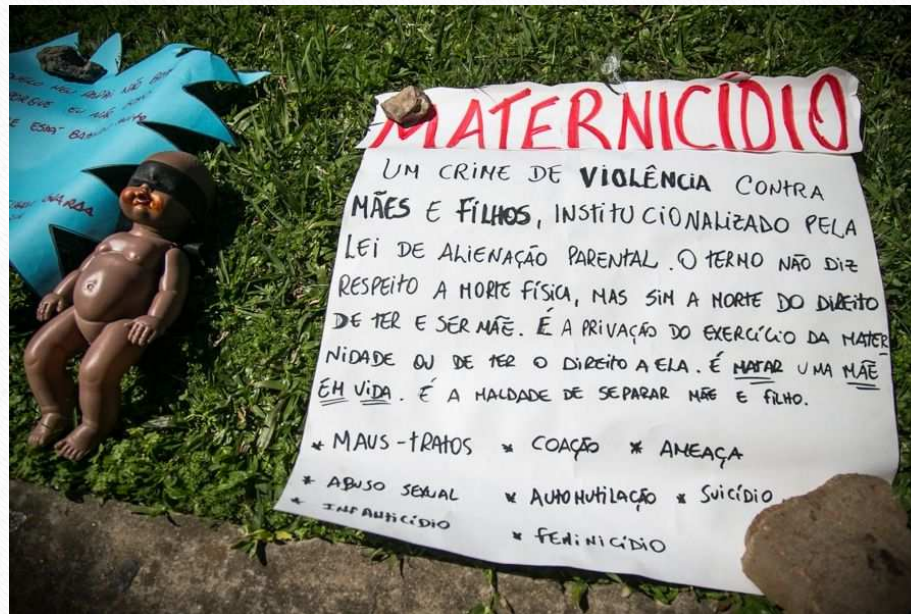 MEU PAPAI NÃO
PORQUE EU NÃO
E ESTÁ
MATERNICÍDIO
UM CRIME DE VIOLÊNCIA CONTRA
MÃES E FILHOS, INSTITUCIONALIZADO PELA
LEI DE ALIENAÇÃO PARENTAL. O TERMO NÃO DIZ
RESPEITO A MORTE FÍSICA, MAS SIM A MORTE DO DIREITO
DE TER E SER MÃE. É A PRIVAÇÃO DO EXERCÍCIO DA MATER
NIDADE OU DE TER O DIREITO A ELA. É MATAR UMA MÃE
EM VIDA. É A MALDADE DE SEPARAR MÃE E FILHO.
* MAUS-TRATOS * COAÇÃO * AMEAÇA
* ABUSO SEXUAL * AUTOMUTILAÇÃO * SUICÍDIO
* INFANTICÍDIO
* FEMINICÍDIO